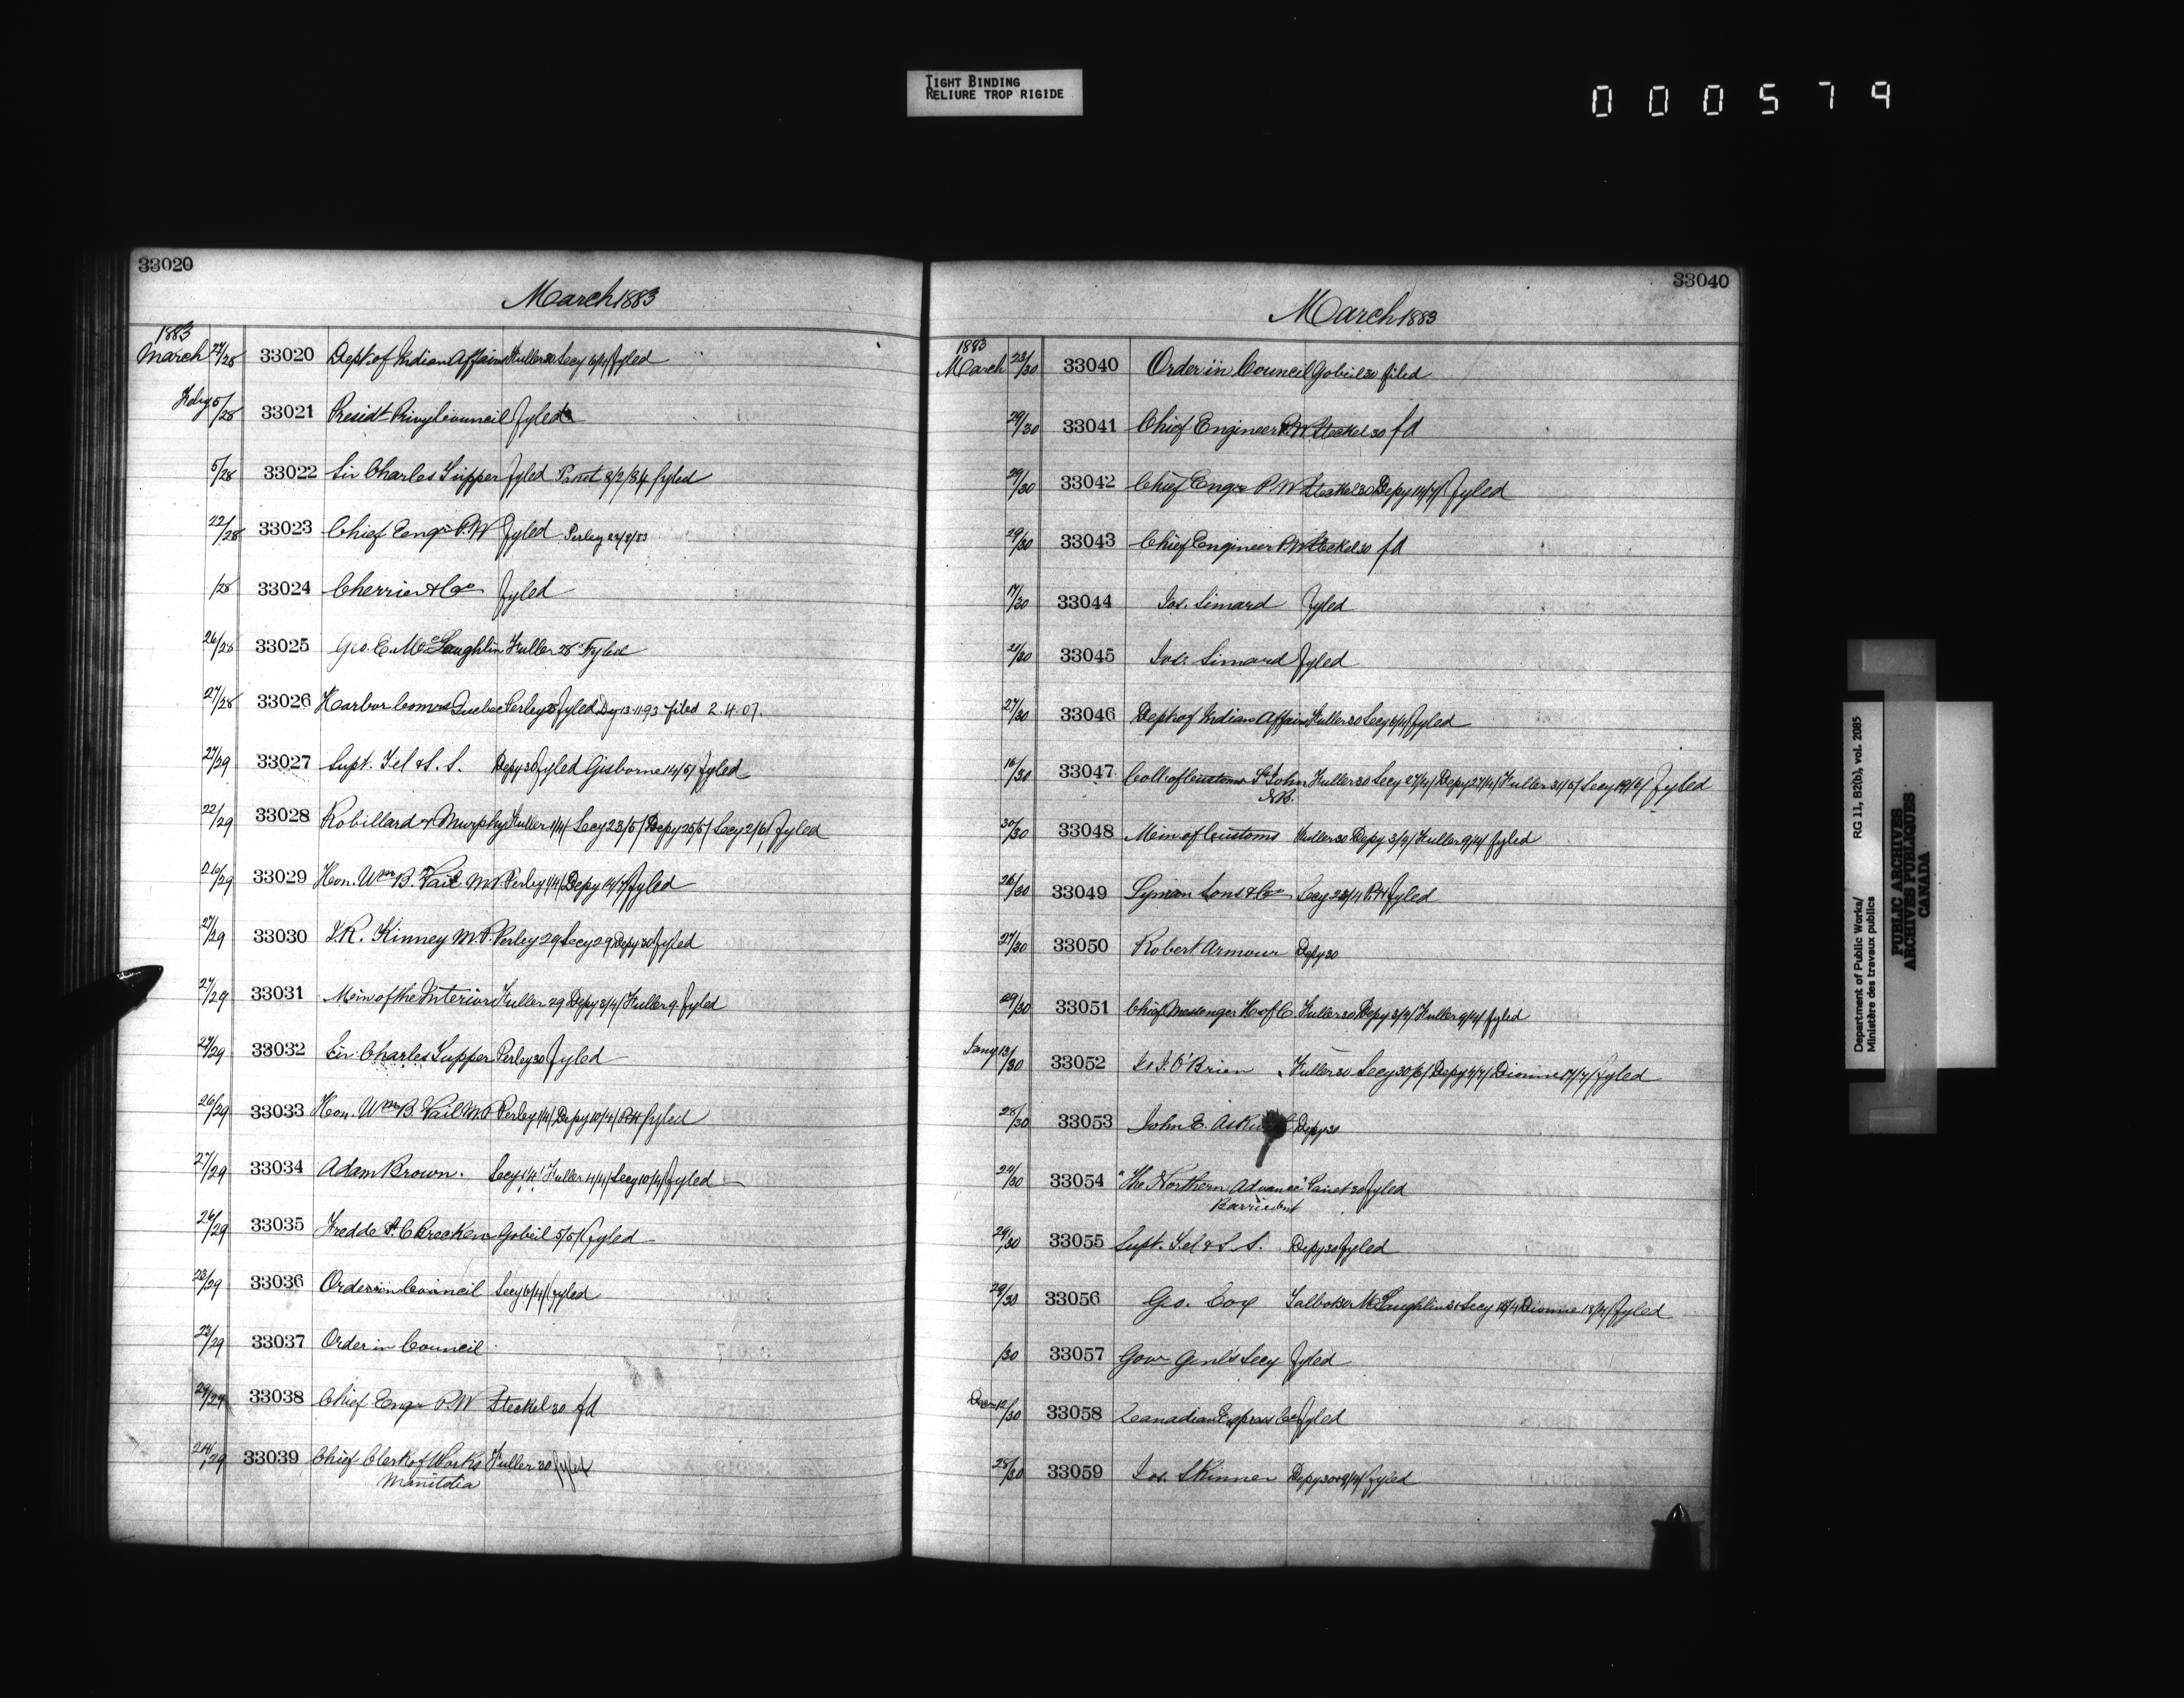 TIGHT BINDING
RELIURE TROP RIGIDE
000579
33020
March 1883
1883
March 27/28 33020 Dept of Indian Affairs Fuller 28 Secy 6/4/ fyled
Feby 5/28 33021 Presidt Privy Council fyled
5/28 33022 Sir Charles Tupper fyled Panet 8/2/84 fyled
22/28 33023 Chief Engr P.W fyled Perley 22/8/83
/28 33024 Cherrier & Co fyled
26/28 33025 Geo. E. McLaughlin Fuller 28 Fyled
27/28 33026 Harbor Comrs Quebec Perley fyled Dy 13-11-93 filed 2.4.07.
27/29 33027 Supt. Tel & S. S. Depy 30 fyled Gisborne 14/5/ fyled
22/29 33028 Robillard & Murphy Fuller 1/4/ Secy 23/5/ Depy 25/5/ Secy 2/6/ fyled
26/29 33029 Hon. Wm B. Vail M.P. Perley 1/4/ Depy fyled
27/29 33030 J.R. Kinney M.P. Perley 29 Secy 29 Depy 30 fyled
27/29 33031 Min of the Interior Fuller 29 Depy 3/4/ Fuller 9 fyled
27/29 33032 Sir Charles Tupper Perley 30 fyled
26/29 33033 Hon. Wm B. Vail M.P Perley 1/4/ Depy 10/4/ fyled
27/29 33034 Adam Brown. Secy 1/4/ Fuller 4/4/ Secy 10/4/ fyled
26/29 33035 Fredde P. C Brecken Gobeil 5/5/ fyled
23/29 33036 Order in Council Secy 6/4/ fyled
23/29 33037 Order in Council
29/29 33038 Chief Engr P.W Steckel 30 fd
24/29 33039 Chief Clerk of Works Fuller 30 fyled
Manitoba
33040
March 1883
1883
March 23/30 33040 Order in Council Gobeil 30 filed
29/30 33041 Chief Engineer P.W. Steckel 30 fd
29/30 33042 Chief Engr P.W Steckel 30 Depy fyled
29/30 33043 Chief Engineer P.W Steckel 30 fd
17/30 33044 Jos. Simard fyled
21/30 33045 Jos. Simard fyled
27/30 33046 Dept of Indian Affairs Fuller 30 Secy 6/4/ fyled
16/30 33047 Coll of Customs St John Fuller 30 Secy 27/4/ Depy 27/4/ Fuller 31/5/ Secy 19/6/ fyled
N.B.
30/30 33048 Min of Customs Fuller 30 Depy 3/4/ Fuller 9/4/ fyled
26/30 33049 Lyman Sons & Co Secy 28/4 fyled
27/30 33050 Robert Armour Depy 30
29/30 33051 Chief Messenger H of C. Fuller 30 Depy 3/4/ Fuller 9/4/ fyled
Jany 13/30 33052 J. O'Brien Fuller 30 Secy 30/6/ Depy Dionne 17/7/ fyled
28/30 33053 John E. Depy 30
24/30 33054 "The Northern Advance" Panet 30 fyled
Barrie Ont
29/30 33055 Supt. Tel & S. S. Depy 30 fyled
29/30 33056 Geo. Cox Talbot 30 McLaughlin 31 Secy Dionne 18/4/ fyled
/30 33057 Govr Genl's Secy fyled
Decr 12/30 33058 Canadian Express Co fyled
28/30 33059 Jos. Skinner Depy 30 & 9/4/ fyled
Department of Public Works/ RG 11, B2(b), vol. 2085
Ministère des travaux publics
PUBLIC ARCHIVES
ARCHIVES PUBLIQUES
CANADA